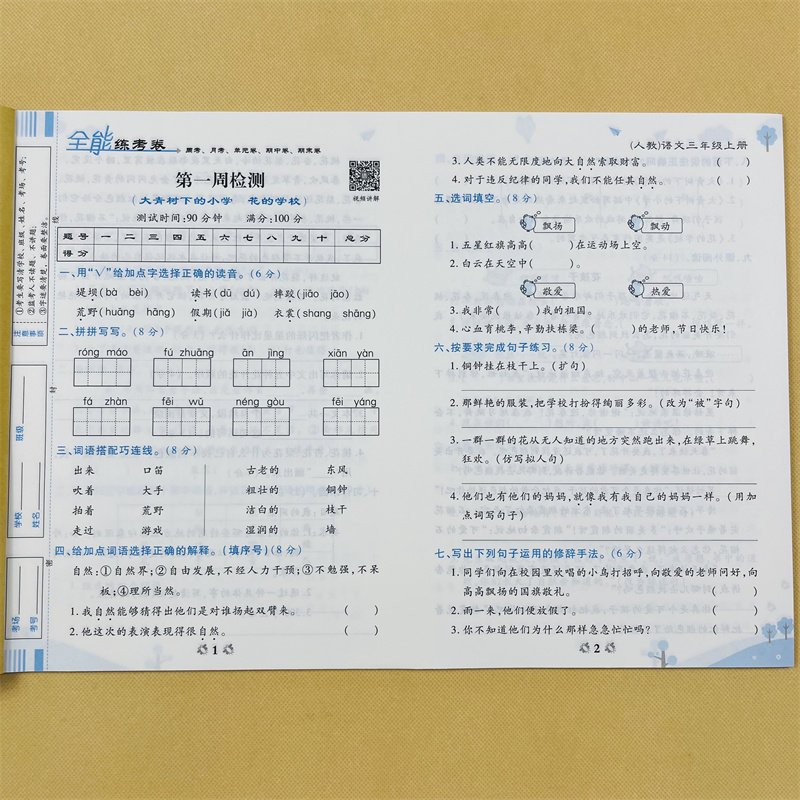 全能练考卷 周考、月考、单元卷、期中卷、期末卷
第一周检测
(大青树下的小学 花的学校)
视频讲解
测试时间:90分钟 满分:100分
题号 一 二 三 四 五 六 七 八 九 十 总分
得分
一、用“√”给加点字选择正确的读音。(6分)
堤坝(bà bèi) 读书(dū dú) 摔跤(jiāo jiāo)
荒野(huāng hāng) 假期(jiǎ jià) 衣裳(shang shāng)
二、拼拼写写。(8分)
róng máo fú zhuāng ān jìng xiān yàn
fá zhàn fēi wǔ néng gòu fēi yáng
三、词语搭配巧连线。(8分)
出来 口笛 古老的 东风
吹着 大手 粗壮的 铜钟
拍着 荒野 洁白的 枝干
走过 游戏 湿润的 墙
四、给加点词语选择正确的解释。(填序号)(8分)
自然:①自然界;②自由发展,不经人力干预;③不勉强,不呆
板;④理所当然。
1.我自然能够猜得出他们是对谁扬起双臂来。 ( )
2.他这次的表演表现得很自然。 ( )
1
(人教)语文三年级上册
3.人类不能无限度地向大自然索取财富。 ( )
4.对于违反纪律的同学,我们不能任其自然。 ( )
五、选词填空。(8分)
飘扬 飘动
1.五星红旗高高( )在运动场上空。
2.白云在天空中( )。
敬爱 热爱
3.我非常( )我的祖国。
4.心血育桃李,辛勤扶栋梁。( )的老师,节日快乐!
六、按要求完成句子练习。(8分)
1.铜钟挂在枝干上。(扩句)
2.那鲜艳的服装,把学校打扮得绚丽多彩。(改为“被”字句)
3.一群一群的花从无人知道的地方突然跑出来,在绿草上跳舞,
狂欢。(仿写拟人句)
4.他们也有他们的妈妈,就像我有我自己的妈妈一样。(用加
点词写句子)
七、写出下列句子运用的修辞手法。(6分)
1.同学们向在校园里欢唱的小鸟打招呼,向敬爱的老师问好,向
高高飘扬的国旗敬礼。 ( )
2.雨一来,他们便放假了。 ( )
3.你不知道他们为什么那样急急忙忙吗? ( )
2
注意事项
①考生要写清学校、班级、姓名、考场、考号;
②监考人不读题、不讲题;
③字迹要清楚,卷面要整洁。
学校
班级
姓名
考场
考号
线
封
密